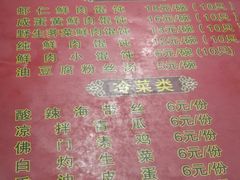 虾仁鲜肉馄饨 18元/碗(10只)
咸蛋黄鲜肉馄饨 元/碗(10只)
野生荠菜鲜肉馄饨 元/碗(10只)
纯鲜肉馄饨 元/碗(10只)
鲜肉小馄饨 元/碗
油豆腐粉丝 5元/碗
冷菜类
酸辣海蜇丝 6元/份
凉拌 6元/份
佛门素鸡 6元/份
白灼生菜 6元/份
皮蛋 6元/份